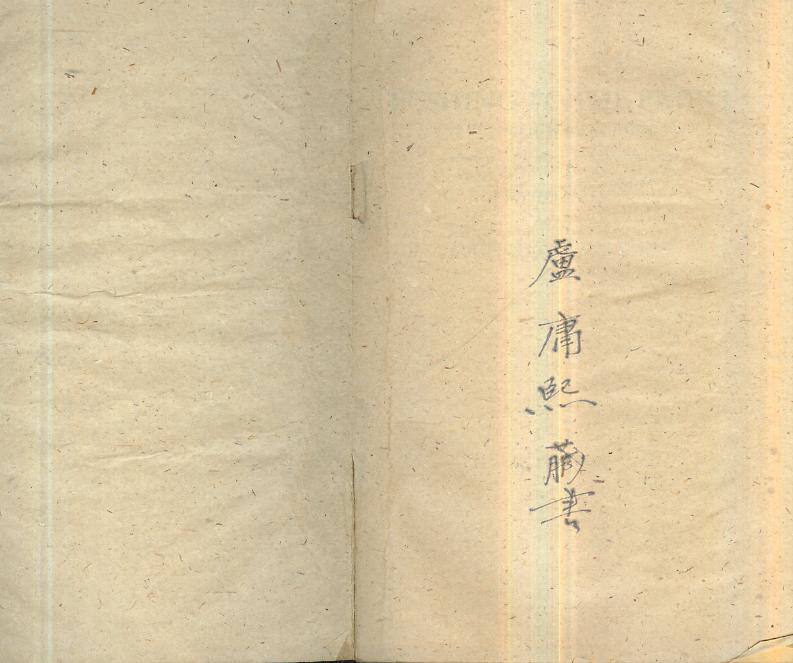 盧庸熙藏書